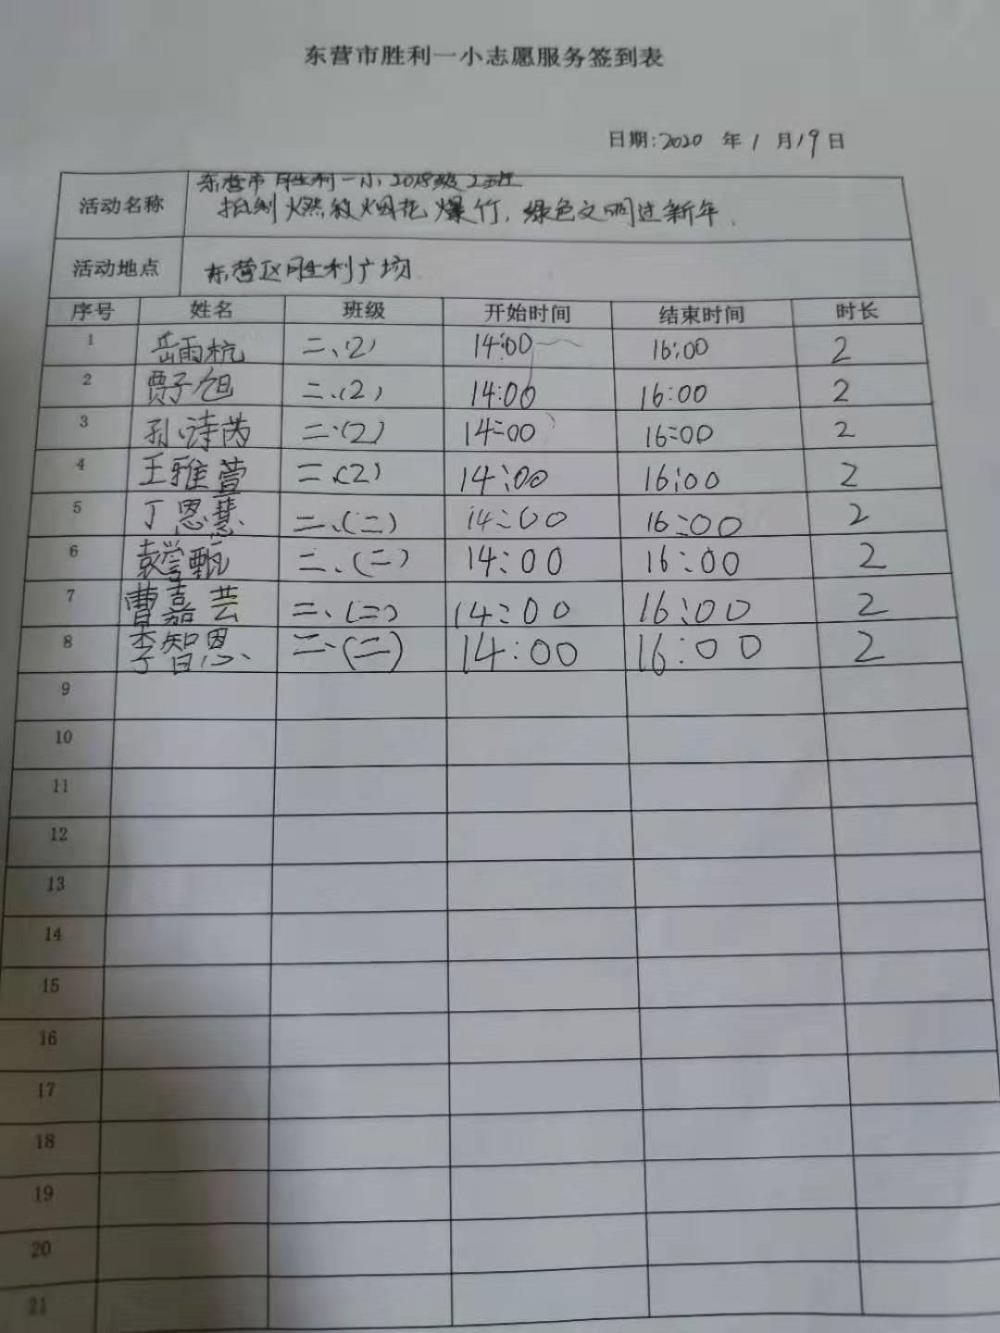 东营市胜利一小志愿服务签到表
日期:2020 年 1 月 19 日
活动名称 东营市胜利一小2018级2班
抵制燃放烟花爆竹,绿色文明过新年.
活动地点 东营区胜利广场
序号 姓名 班级 开始时间 结束时间 时长
1 岳雨杭 二、(2) 14:00 16:00 2
2 贾子旭 二、(2) 14:00 16:00 2
3 孙诗芮 二、(2) 14:00 16:00 2
4 王雅萱 二、(2) 14:00 16:00 2
5 丁恩慧 二、(二) 14:00 16:00 2
6 袁誉甄 二、(二) 14:00 16:00 2
7 曹嘉芸 二、(二) 14:00 16:00 2
8 李智恩 二、(二) 14:00 16:00 2
9
10
11
12
13
14
15
16
17
18
19
20
21